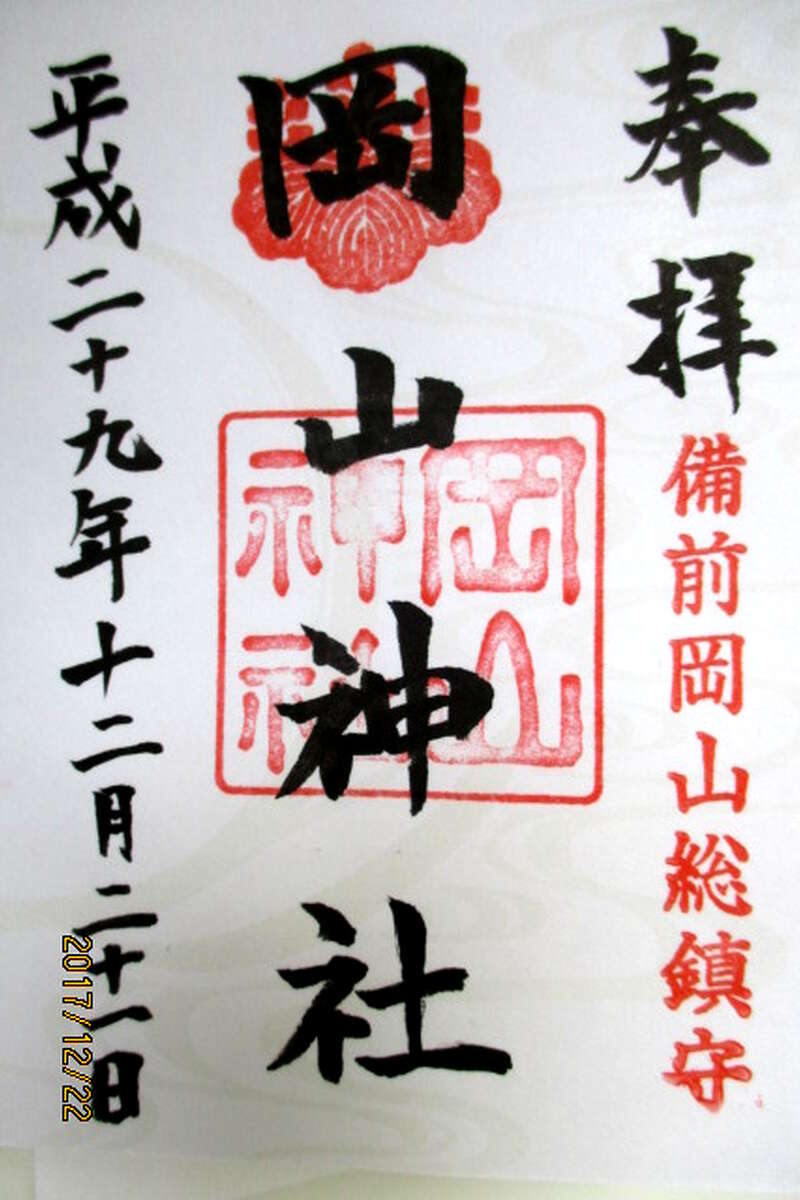 奉拝
備前岡山総鎮守
岡山神社
岡山神社
平成二十九年十二月二十一日
2017/12/22